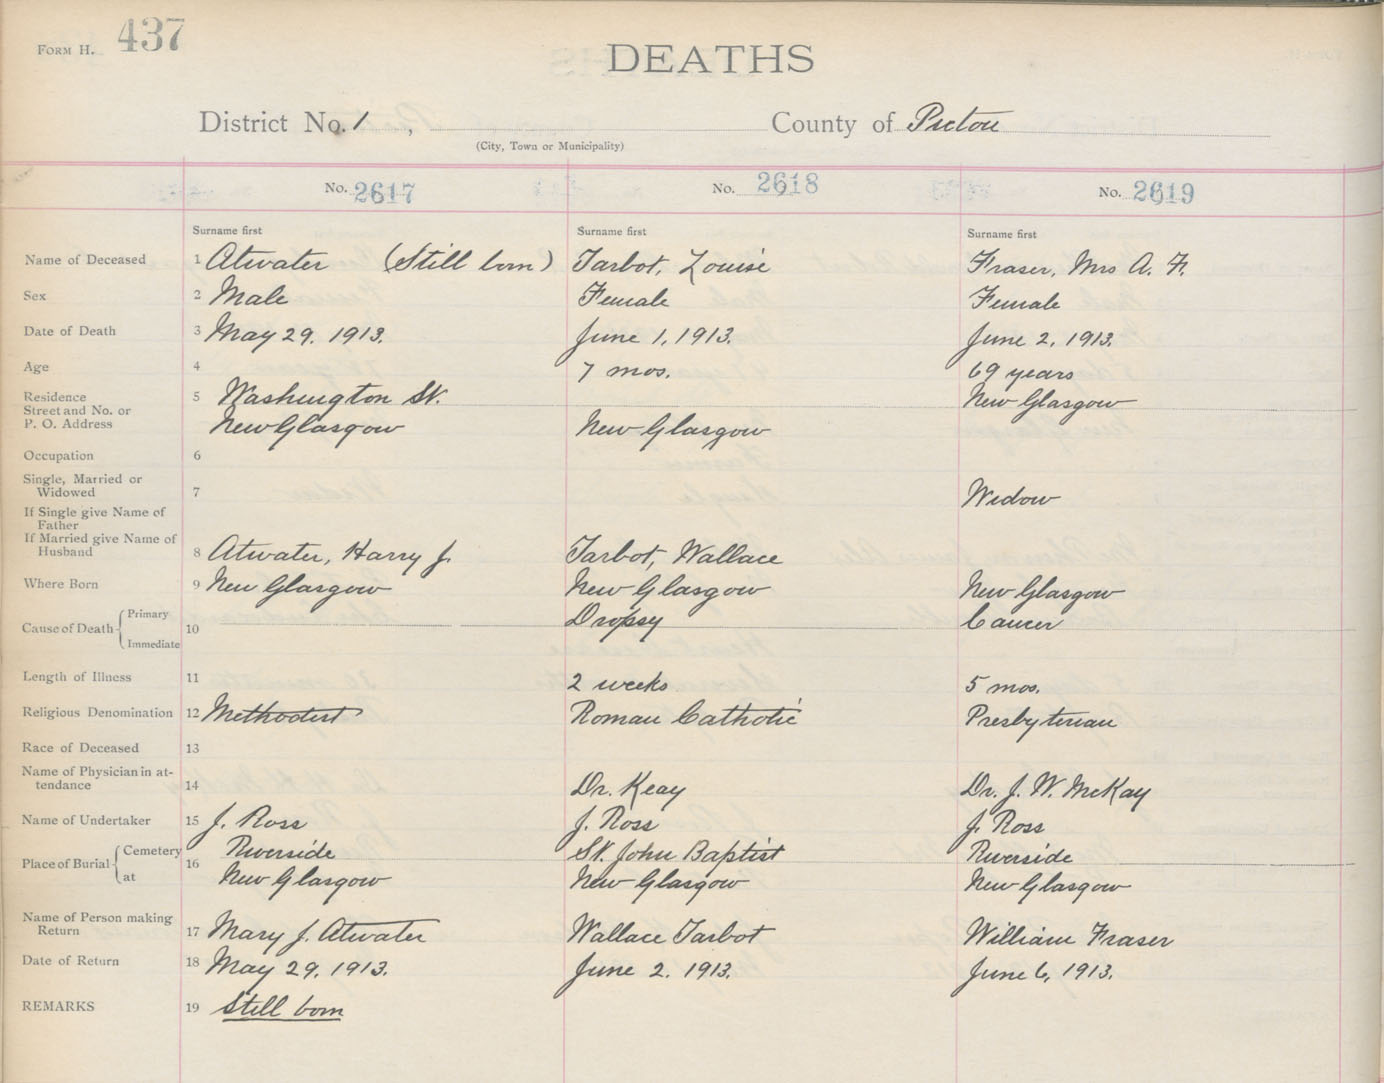 FORM H. 437
DEATHS
District No. 1 , County of Pictou
(City, Town or Municipality)
No. 2617 No. 2618 No. 2619
Surname first Surname first Surname first
Name of Deceased 1 Atwater (Still born) Tarbot, Louise Fraser, Mrs A. F.
Sex 2 Male Female Female
Date of Death 3 May 29. 1913. June 1, 1913. June 2, 1913.
Age 4 7 mos. 69 years
Residence 5 Washington St. New Glasgow
Street and No. or
P. O. Address New Glasgow New Glasgow
Occupation 6
Single, Married or
Widowed 7 Widow
If Single give Name of
Father
If Married give Name of
Husband 8 Atwater, Harry J. Tarbot, Wallace
Where Born 9 New Glasgow New Glasgow New Glasgow
Cause of Death Primary 10 Dropsy Cancer
Immediate
Length of Illness 11 2 weeks 5 mos.
Religious Denomination 12 Methodist Roman Catholic Presbyterian
Race of Deceased 13
Name of Physician in at-
tendance 14 Dr. Keay Dr. J. W. McKay
Name of Undertaker 15 J. Ross J. Ross J. Ross
Place of Burial Cemetery 16 Riverside St. John Baptist Riverside
at New Glasgow New Glasgow New Glasgow
Name of Person making
Return 17 Mary J. Atwater Wallace Tarbot William Fraser
Date of Return 18 May 29. 1913. June 2. 1913. June 6, 1913.
REMARKS 19 Still born